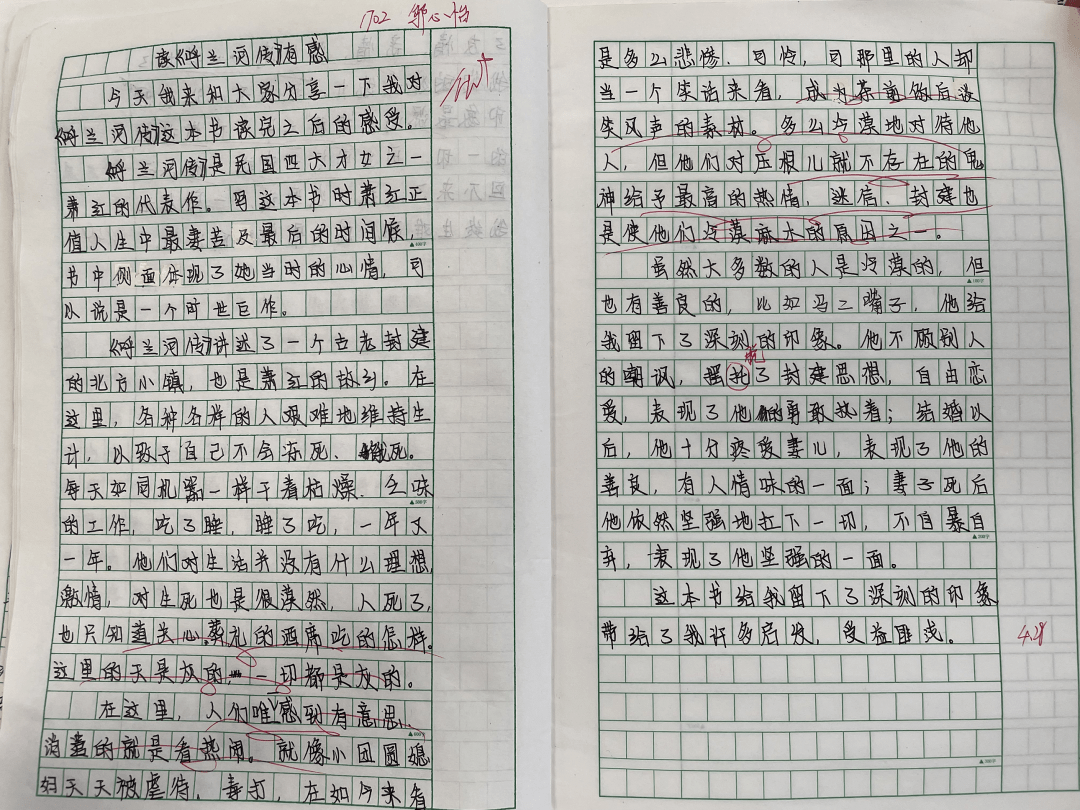 1702 郭心怡
读《呼兰河传》有感
今天我来和大家分享一下我对
《呼兰河传》这本书读完之后的感受。
《呼兰河传》是民国四大才女之一
萧红的代表作。写这本书时萧红正
值人生中最凄苦及最后的时间候,
书中侧面体现了她当时的心情,可
以说是一个旷世巨作。
《呼兰河传》讲述了一个古老封建
的北方小镇,也是萧红的故乡。在
这里,各种各样的人艰难地维持生
计,以致于自己不会冻死、饿死。
每天如同机器一样干着枯燥、乏味
的工作,吃了睡,睡了吃,一年又
一年。他们对生活并没有什么理想,
激情,对生死也是很漠然,人死了,
也只知道关心葬礼的酒席吃的怎样。
这里的天是灰的,一切都是灰的。
在这里,人们唯感到有意思、
消遣的就是看热闹。就像小团圆媳
妇天天被虐待,毒打,在如今来看
是多么悲惨、可怜,可那里的人却
当一个笑话来看,成为茶前饭后谈
笑风声的素材。多么冷漠地对待他
人,但他们对压根儿就不存在的鬼
神给予最高的热情,迷信、封建也
是使他们冷漠麻木的原因之一。
虽然大多数的人是冷漠的,但
也有善良的,比如冯二嘴子,他给
我留下了深刻的印象。他不顾别人
的嘲讽,抵了封建思想,自由恋
抗
爱,表现了他的勇敢执着;结婚以
后,他十分疼爱妻儿,表现了他的
善良,有人情味的一面;妻子死后
他依然坚强地扛下一切,不自暴自
弃,表现了他坚强的一面。
这本书给我留下了深刻的印象
带给了我许多启发,受益匪浅。
4.28